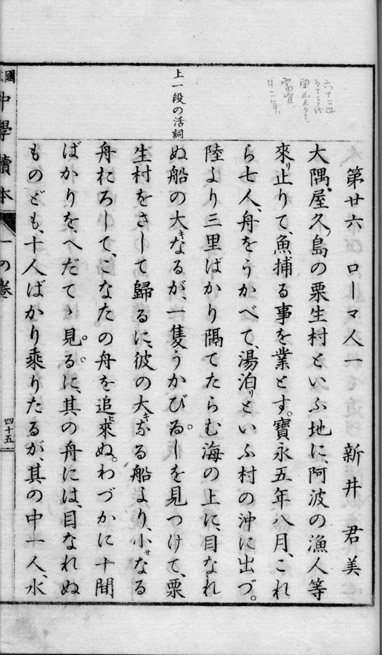 上一段の活詞
第廿六 ローマ人一 新井君美
大隅、屋久島の栗生村といふ地に、阿波の漁人等
來り止りて、魚捕る事を業とす。寶永五年八月、これ
ら七人、舟をうかべて、湯泊りといふ村の沖に出づ。
陸より三里ばかり隔てたらむ海の上に、目なれ
ぬ船の大きなるが、一隻うかびゐしを見つけて、栗
生村をさして歸るに、彼の大きなる船より、小さなる
舟おろして、こなたの舟を追ひ來ぬ。わづかに十間
ばかりを、へだてゝ見るに、其の舟には、目なれぬ
ものども、十人ばかり乘りたるが、其の中一人、水
中學讀本 一の卷 四十五